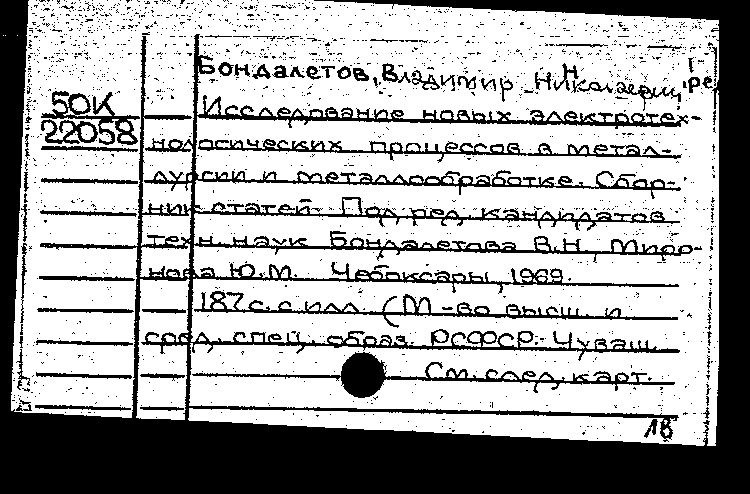 Бондалетов, Владимир Николаевич, ред
50К
22058
Исследование новых электротех-
нологических процессов в метал-
лургии и металлообработке. Сбор-
ник статей. Под ред. кандидатов
техн. наук Бондалетова В.Н., Миро-
нова Ю.М. Чебоксары, 1969.
187 с. с илл. (М-во высш. и
сред. спец. образ. РСФСР. Чуваш.
См. след. карт.
1В